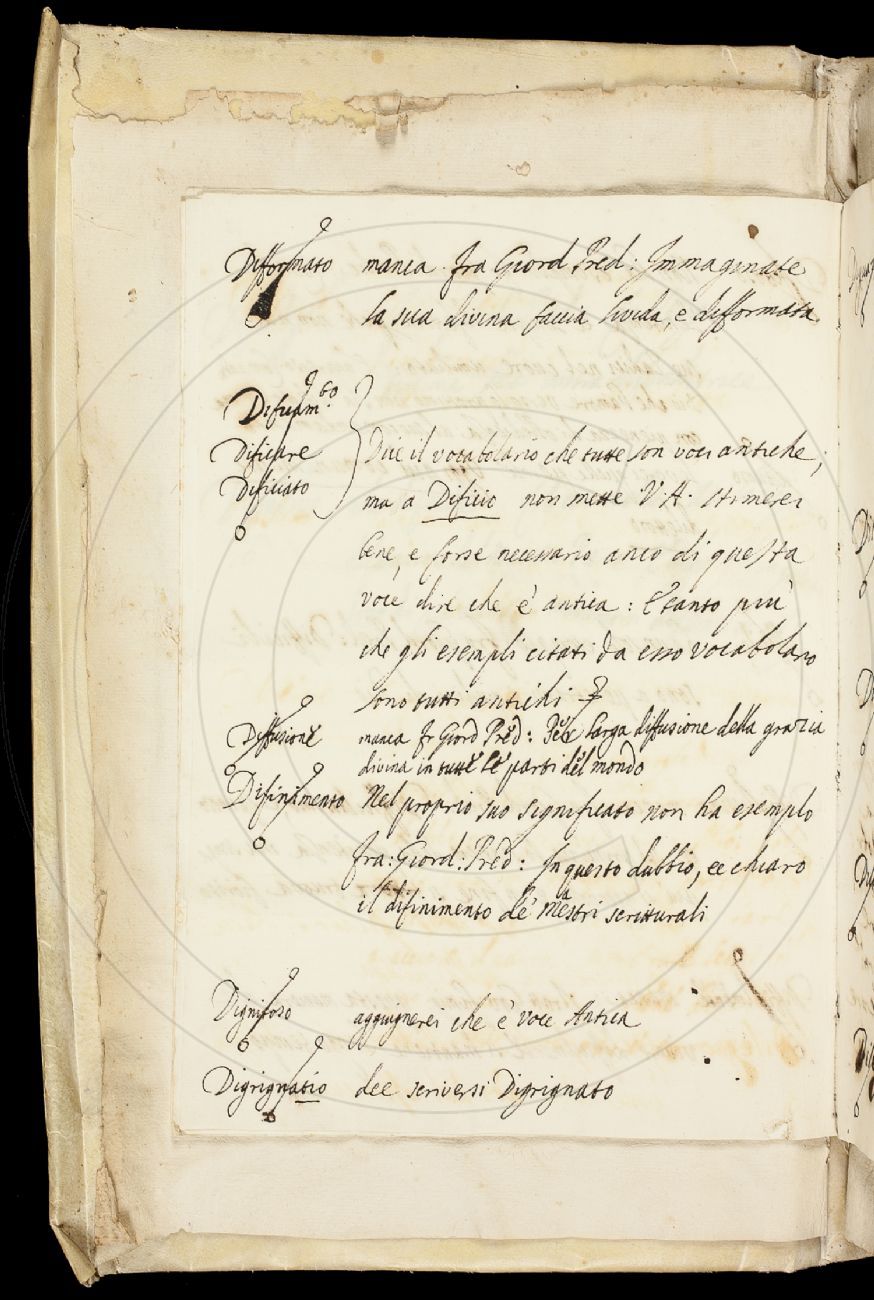 Difformato manca. fra Giord Pred: Immaginate
la sua divina faccia livida, e difformata.
Dificam.to
Dificare Dice il vocabolario che tutte son voci antiche;
Dificiato ma a Dificio non mette V. A. stimerei
bene, e forse necessario anco di questa
voce dire che è antica: E tanto più
che gli esempli citati da esso vocabolario
sono tutti antichi
Diffusione manca Fr Giord Pred: larga diffusione della grazia
divina in tutte le parti del mondo
Difinimento Nel proprio suo significato non ha esemplo
fra: Giord: Pred: In questo dubbio, ee chiaro
il difinimento de' Maestri scritturali
Dignitoso aggiugnerei che è voce Antica
Digrignatio dee scriversi Digrignato